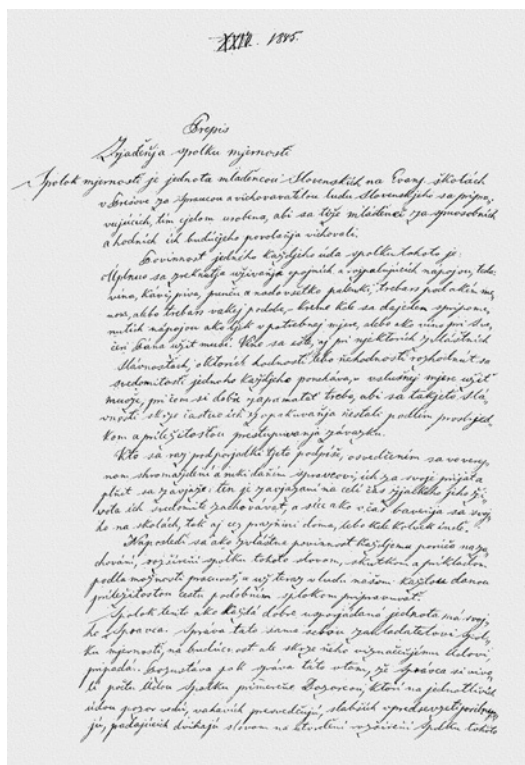 XXIV. 1845.
Prepis
Zrjadeňja spolku mjernosti
Spolok mjernosti je jednota mládencou Slovenskích na Evanj. školách
v Prešove za správcou a vichovávatelou ludu Slovenskjeho sa pripra-
vujúcich, tím cjelom urobena, abi sa títo mládenci za spuosobních
a hodních ich budúcjeho povolaňja vichovali.
Povinnosť jednoho každjeho úda spolku tohoto je:
Úplnou sa zeknutja užívaňja opojních a rozpalujících nápojou, teda:
vína, kávi, piva, punču a nadovšetko palenki, trebars pod akím me-
nom, alebo trebars v akej podobe, – krem kde sa dajedem spripome-
nutích nápojou ako ljek v potrebnej mjere, alebo ako víno pri Sve-
čeri Pána užiť musí. Víno sa ešte aj pri njektorích zvláštních
slávnosťach, o ktorích hodnosti lebo nehodnosti rozhodnuť sa
svedomitosti jednoho každjeho ponecháva, v slušnej mjere užiť
muože, pri čom si dobre zapamatať treba, abi sa takjeto slá-
vnosti skrze častuo ich opakuvaňja nestali podlím prostrjed-
kom a príležitosťou prestupuvaňja záväzku.
Kto sa raz pod porjadki tjeto podpíše, osvedčením sa vo verej-
nom shromaždení a ruki daňím správcovi, ich za svoje prijať a
plniť sa zavjaže: ten je zavjazaní na celí čas zjalkeho jeho ži-
vota ich svedomite zachovávať, a síce ako v čas baveňja sa svoj-
ho na školách, tak aj cez prázňini doma, lebo kdekolvek inde.
Naposledi sa ako zvláštne povinnosť každjemu poviňe na za-
chováňí, rozšíreňí spolku tohoto slovom, skutkom a príkladom
podla možnosti pracuvať, a už teraz v ludu našom každou danou
príležitosťou cestu podobním spolkom pripravuvať.
Spolok tento ako každá dobre usporjadaná jednota má svoj-
ho Správca. Správa táto sama sebou zakladatelovi spol-
ku mjernosti, na budúcnosť ale skrze ňeho viznačeňjemu údovi,
pripadá. Pozustáva pak správa táto v tom, že Správca si vivo-
lí počtu údou spolku primerních Dozorcou, ktorí na jednotlivích
údou pozor vedú, váhavích presvedčujú, slabších v predsevzetí posilňu-
jú, padajúcich dvíhajú slovom na utvrdení rozšírení spolku tohoto